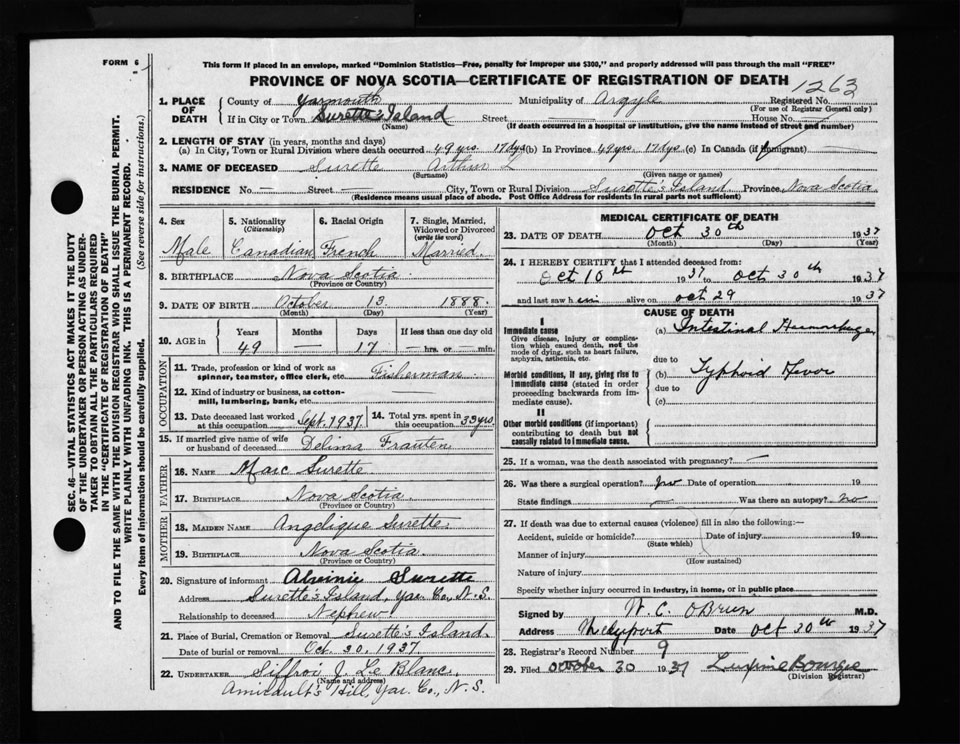 FORM 6
This form if placed in an envelope, marked "Dominion Statistics—Free, penalty for improper use $300," and properly addressed will pass through the mail "FREE"
PROVINCE OF NOVA SCOTIA—CERTIFICATE OF REGISTRATION OF DEATH
1263
1. PLACE OF DEATH
County of Yarmouth Municipality of Argyle Registered No.
(For use of Registrar General only)
If in City or Town Surette's Island Street — House No.
(Name) (If death occurred in a hospital or institution, give the name instead of street and number)
2. LENGTH OF STAY (in years, months and days)
(a) In City, Town or Rural Division where death occurred 49 yrs. 17 dys (b) In Province 49 yrs. 17 dys. (c) In Canada (if immigrant) —
3. NAME OF DECEASED Surette Arthur L
(Surname) (Given name or names)
RESIDENCE No — Street — City, Town or Rural Division Surette's Island Province Nova Scotia
(Residence means usual place of abode. Post Office Address for residents in rural parts not sufficient)
4. Sex Male
5. Nationality (Citizenship) Canadian
6. Racial Origin French
7. Single, Married, Widowed or Divorced (write the word) Married
8. BIRTHPLACE Nova Scotia
(Province or Country)
9. DATE OF BIRTH October 13 1888.
(Month) (Day) (Year)
10. AGE in Years 49 Months — Days 17 If less than one day old — hrs. or — min.
OCCUPATION
11. Trade, profession or kind of work as spinner, teamster, office clerk, etc. Fisherman
12. Kind of industry or business, as cotton-mill, lumbering, bank, etc. —
13. Date deceased last worked at this occupation Sept. 1937
14. Total yrs. spent in this occupation 33 yrs.
15. If married give name of wife or husband of deceased Delima
FATHER
16. NAME Marc Surette
17. BIRTHPLACE Nova Scotia
(Province or Country)
MOTHER
18. MAIDEN NAME Angelique Surette
19. BIRTHPLACE Nova Scotia
(Province or Country)
20. Signature of informant Surette
Address Surette's Island, Yar. Co., N.S.
Relationship to deceased Nephew
21. Place of Burial, Cremation or Removal Surette's Island.
Date of burial or removal Oct. 30, 1937
22. UNDERTAKER Siffroi J. Le Blanc,
(Name and address)
Amirault's Hill, Yar. Co., N.S.
MEDICAL CERTIFICATE OF DEATH
23. DATE OF DEATH Oct 30th 1937
(Month) (Day) (Year)
24. I HEREBY CERTIFY that I attended deceased from:
Oct 10th 1937 to Oct 30th 1937
and last saw him alive on Oct 29 1937
CAUSE OF DEATH
I
Immediate cause
Give disease, injury or complication which caused death, not the mode of dying, such as heart failure, asphyxia, asthenia, etc.
(a) Intestinal Hemorrhage
due to
Morbid conditions, if any, giving rise to immediate cause (stated in order proceeding backwards from immediate cause).
(b) Typhoid Fever
due to
(c)
II
Other morbid conditions (if important) contributing to death but not causally related to immediate cause.
25. If a woman, was the death associated with pregnancy? —
26. Was there a surgical operation? no Date of operation 19
State findings — Was there an autopsy? no
27. If death was due to external causes (violence) fill in also the following:—
Accident, suicide or homicide? Date of injury 19
(State which)
Manner of injury
(How sustained)
Nature of injury
Specify whether injury occurred in industry, in home, or in public place
Signed by W. C. O'Brien M.D.
Address Date Oct 30th 1937
28. Registrar's Record Number 9
29. Filed October 30 1937
(Division Registrar)
SEC. 46—VITAL STATISTICS ACT MAKES IT THE DUTY OF THE UNDERTAKER OR PERSON ACTING AS UNDERTAKER TO OBTAIN ALL THE PARTICULARS REQUIRED IN THE "CERTIFICATE OF REGISTRATION OF DEATH" AND TO FILE THE SAME WITH THE DIVISION REGISTRAR WHO SHALL ISSUE THE BURIAL PERMIT.
WRITE PLAINLY WITH UNFADING INK. THIS IS A PERMANENT RECORD.
Every item of information should be carefully supplied. (See reverse side for instructions.)